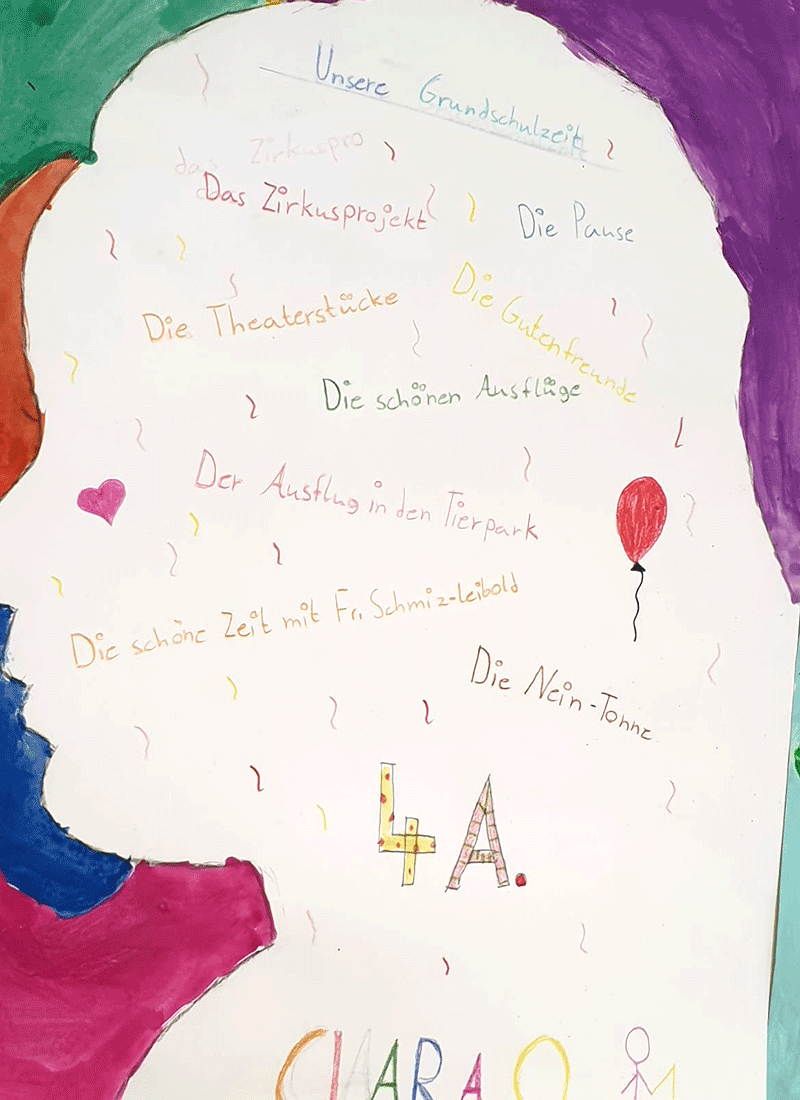 Unsere Grundschulzeit
das Zirkuspro
Das Zirkusprojekt
Die Pause
Die Theaterstücke
Die Gutenfreunde
Die schönen Ausflüge
Der Ausflug in den Tierpark
Die schöne Zeit mit Fr. Schmiz-leibold
Die Nein-Tonne
4A.